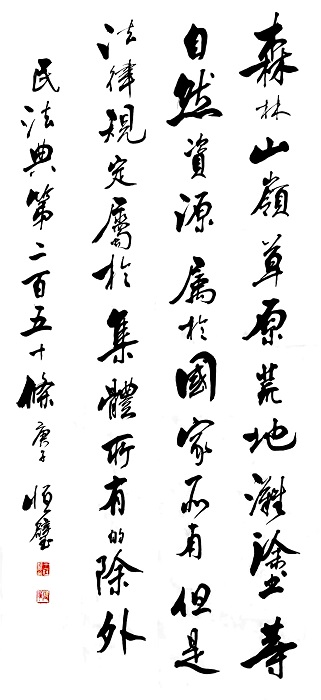 森林山嶺草原荒地灘塗等
自然資源属於國家所有但是
法律規定屬於集體所有的除外
民法典第二百五十條 庚子 恒璧